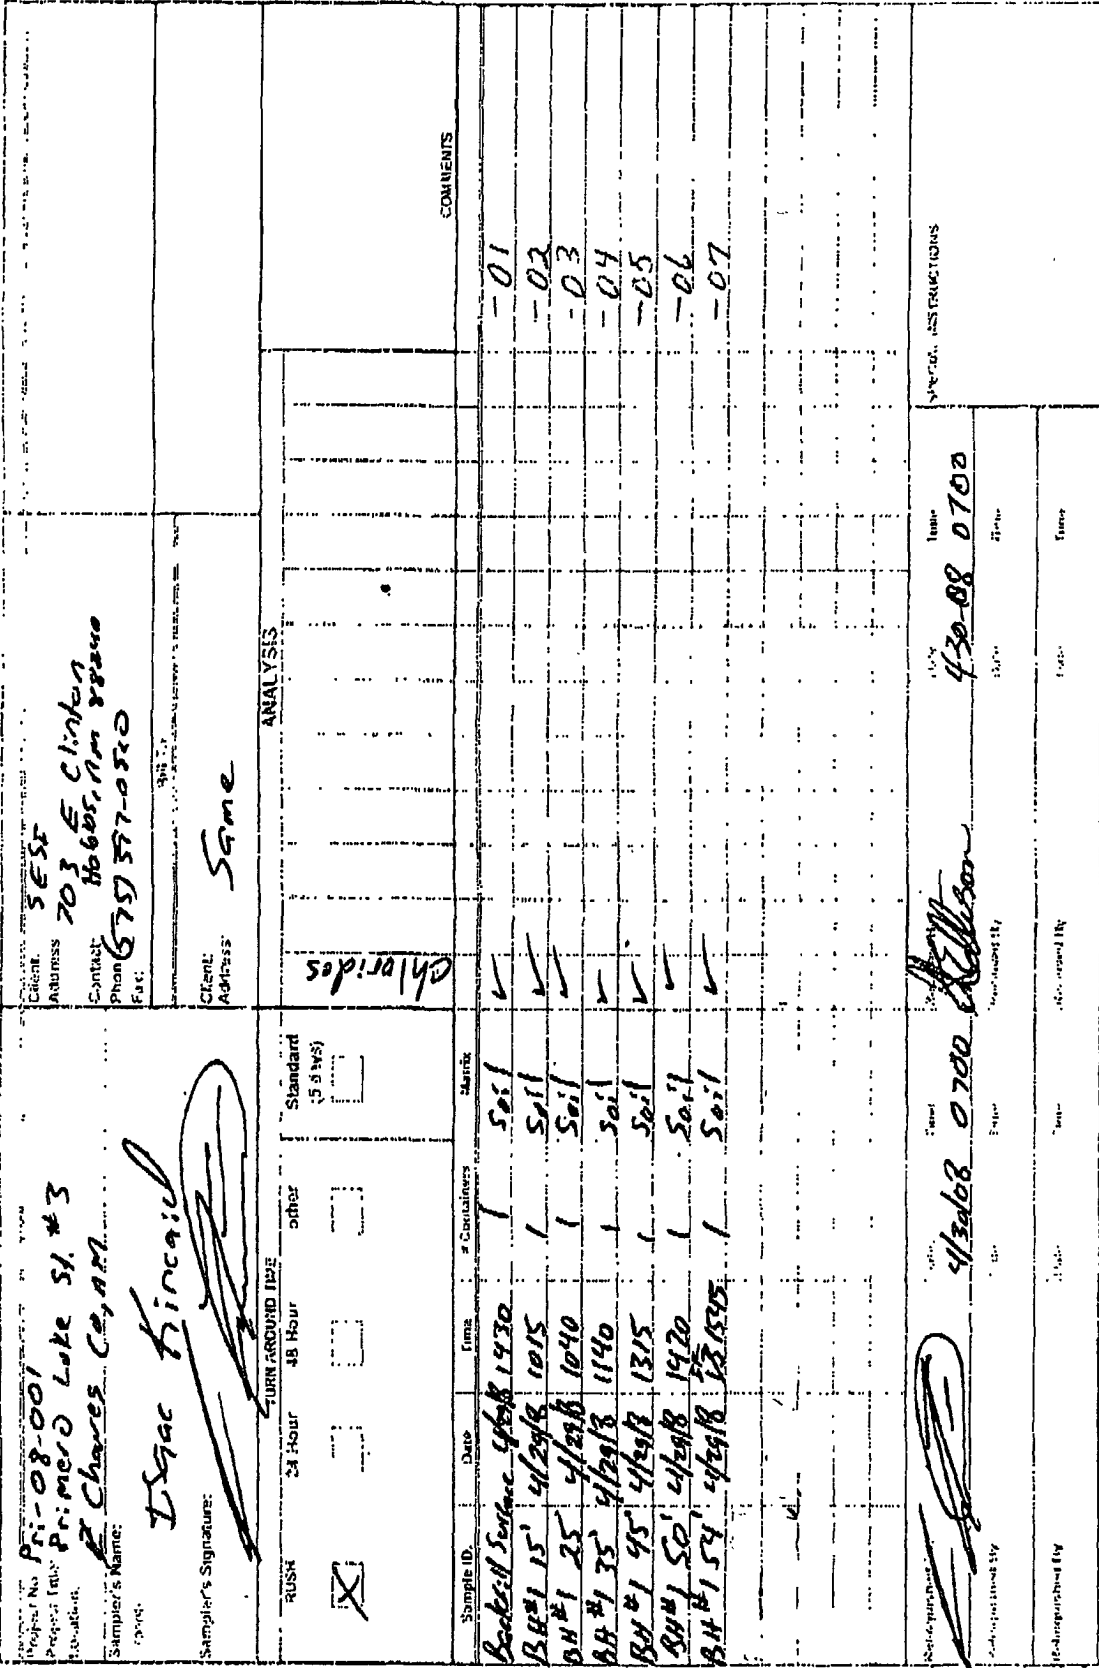 Project No Pri-08-001
Project Title Primero Lake St. #3
Location: Chaves Co, NM
Sampler's Name:
Isaac Kincaid
Sampler's Signature:
Client: SESI
Address 703 E Clinton
Hobbs, NM 88240
Contact:
Phone (575)
Fax:
Bill To
Client: Same
Address:
TURN AROUND TIME
RUSH 24 Hour 48 Hour other Standard
(5 days)
X
ANALYSIS
Chlorides
COMMENTS
Sample ID. Date Time # Containers Matrix
Backfill Surface 4/29/8 1430 1 Soil ✓ -01
BH #1 15' 4/29/8 1015 1 Soil ✓ -02
BH #1 25' 4/29/8 1040 1 Soil ✓ -03
BH #1 35' 4/29/8 1140 1 Soil ✓ -04
BH #1 45' 4/29/8 1315 1 Soil ✓ -05
BH #1 50' 4/29/8 1420 1 Soil ✓ -06
BH #1 54' 4/29/8 1545 1 Soil ✓ -07
Relinquished By Date Time Date Time
4/30/08 0700 4-30-08 0700
SPECIAL INSTRUCTIONS
Relinquished By Date Time Received By Date Time
Relinquished By Date Time Received By Date Time